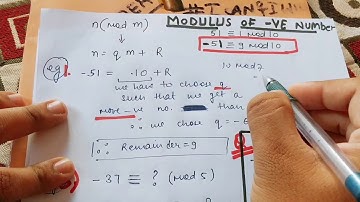 n(mod m)
MODULUS OF -VE Number
↓
51 ≡ 1 mod 10
n = q m + R
-51 ≡ 9 mod 10
eg 1. -51 = .10 + R
10 mod 7
we have to choose q
such that we get a
more -ve no. than
∴ we chose q = -6
∴ Remainder = 9
-37 ≡ ? (mod 5)